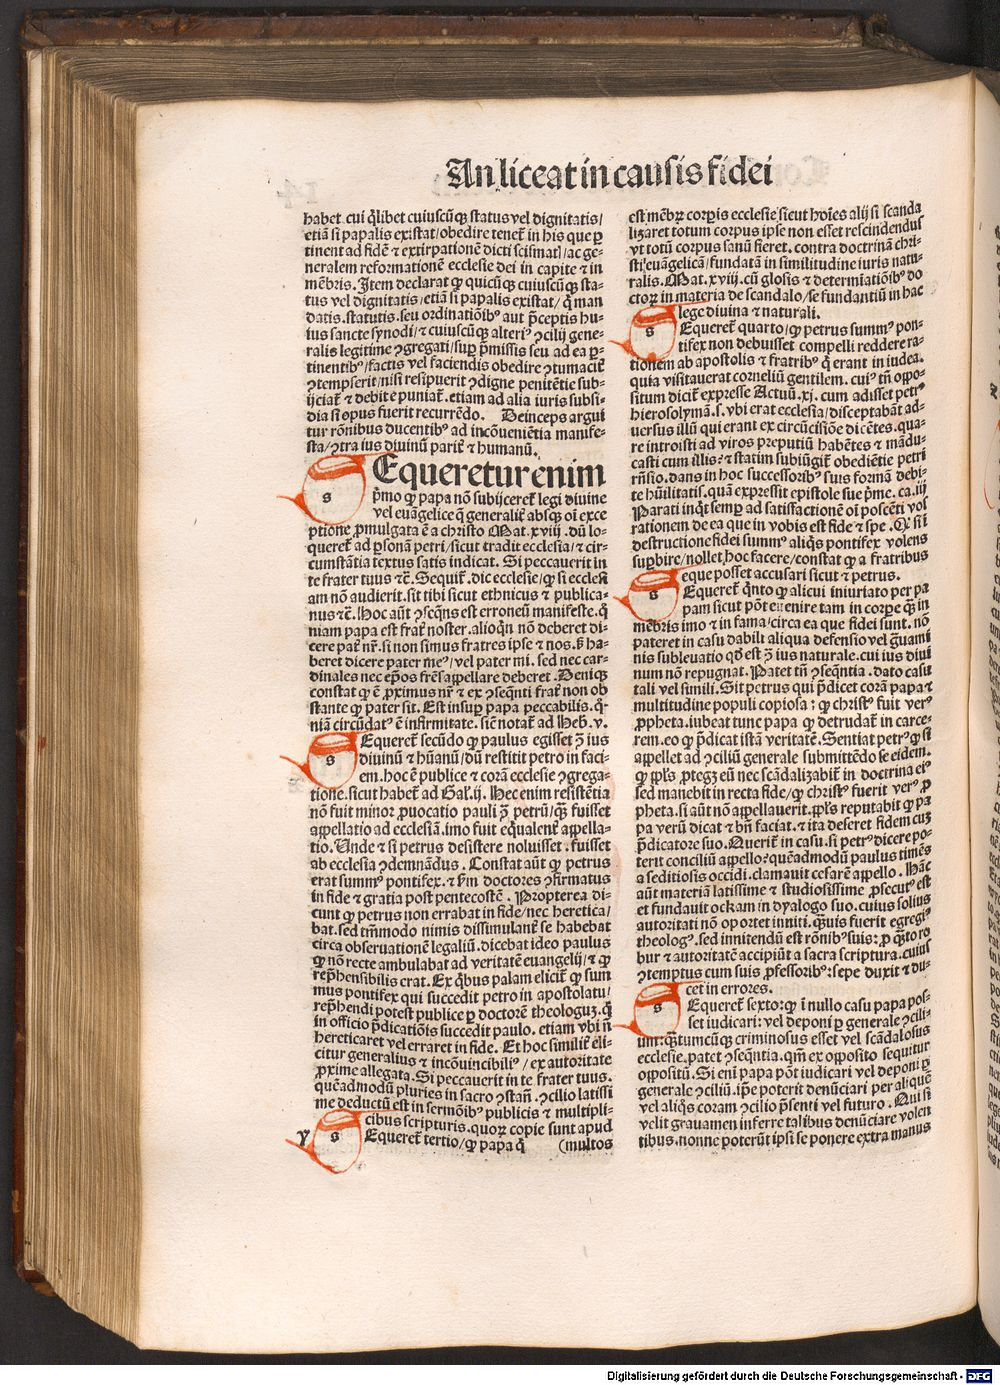 An liceat in causis fidei
habet. cui q̃libet cuiuscūqꝫ status vel dignitatis/
etiā si papalis existat/obedire tenet̃ in his que ꝑ
tinent ad fidē ⁊ extirpationē dicti scismat̃/ac ge-
neralem reformationē ecclesie dei in capite ⁊ in
mēbris. Itẽm declarat ꝙ quicūqꝫ cuiuscūqꝫ sta-
tus vel dignitatis/etiā si papalis existat/ꝙ man
datis. statutis. seu ordinatiōibꝰ aut p̃ceptis hu-
ius sancte synodi/⁊ cuiuscūqꝫ alteriꝰ ꝯcilij gene-
ralis legitime ꝯgregati/suꝑ p̃missis seu ad ea ꝑ-
tinentibꝰ/factis vel faciendis obedire ꝯtumacit̃
ꝯtempserit/nisi resipuerit ꝯdigne penitētie sub-
ijciat̃ ⁊ debite puniat̃. etiam ad alia iuris subsi-
dia si opus fuerit recurrēdo. Deinceps argui
tur rōnibus ducentibꝰ ad incōuenientia manife-
sta/ꝯtra ius diuinū parit̃ ⁊ humanū.
s Equereturenim
p̃mo ꝙ papa nō subijceret̃ legi diuine
vel euāgelice q̃ generalit̃ absqꝫ oī exce
ptione ꝓmulgata ē a christo Mat. xviij. dū lo-
queret̃ ad ꝑsonā petri/sicut tradit ecclesia/⁊ cir-
cumstātia textus satis indicat. Si peccauerit in
te frater tuus ⁊c̃. Sequit̃. dic ecclesie/ꝙ si ecclesi
am nō audierit. sit tibi sicut ethnicus ⁊ publica-
nus ⁊c̃. Hoc aūt ꝯseq̃ns est erroneū manifeste. q̃
niam papa est frat̃ noster. alioq̃n nō deberet di-
cere pat̃ nr̃. si non simus fratres ipse ⁊ nos. s̃ ha-
beret dicere pater meꝰ/vel pater mi. sed nec car-
dinales nec ep̄os frēs appellare deberet. Deniqꝫ
constat ꝙ ē ꝓximus nr̃ ⁊ ex ꝯseq̃nti frat̃ non ob
stante ꝙ pater sit. Est insuꝑ papa peccabilis. q̃-
niā circūdatꝰ ē infirmitate. sic̃ notat̃ ad Heb. v.
s Equeret̃ secūdo ꝙ paulus egisset ꝯ̃ ius
diuinū ⁊ hūanū/dū restitit petro in faci-
em. hoc ē publice ⁊ corā ecclesie ꝯgrega-
tione. sicut habet̃ ad Gal̃. ij. Nec enim resistētia
nō fuit minor ꝓuocatio pauli ꝯ̃ petrū/q̃ꝫ fuisset
appellatio ad ecclesiā. imo fuit eq̃ualens̃ appella-
tio. Unde ⁊ si petrus desistere noluisset. fuisset
ab ecclesia ꝯdemnādus. Constat aūt ꝙ petrus
erat summꝰ pontifex. ⁊ ẜm doctores ꝯfirmatus
in fide ⁊ gratia post pentecostē. Propterea di-
cunt ꝙ petrus non errabat in fide/nec heretica/
bat. sed tm̄modo nimis dissimulant̃ se habebat
circa obseruationē legaliū. dicebat ideo paulus
ꝙ nō recte ambulabat ad veritatē euangelij/⁊ ꝙ
rep̃hensibilis erat. Ex q̃bus palam elicit̃ ꝙ sum
mus pontifex qui succedit petro in apostolatu/
rep̃hendi potest publice ꝑ doctorē theologuꝫ. q̃
in officio p̃dicatiōis succedit paulo. etiam vbi ñ
hereticaret vel erraret in fide. Et hoc similit̃ eli-
citur generalius ⁊ incōuincibiliꝰ/ex autoritate
ꝓxime allegata. Si peccauerit in te frater tuus.
quēadmodū pluries in sacro ꝯstañ. ꝯcilio latissi
me deductū est in sermōibꝰ publicis ⁊ multipli-
cibus scripturis. quoꝝ copie sunt apud
Y s Equeret̃ tertio/ꝙ papa q̃ (multos
est mēbꝝ corꝑis ecclesie sicut hoīes alij si scanda
lizaret totum corpus ipse non esset rescindendus
vt totū corpus sanū fieret. contra doctrinā chri-
sti euāgelicā/fundatā in similitudine iuris natu-
ralis. Mat. xviij. cū glosis ⁊ determīatiōibꝰ do
ctoꝝ in materia de scandalo/se fundantiū in hac
lege diuina ⁊ naturali.
s Equeret̃ quarto/ꝙ petrus summꝰ pon-
tifex non debuisset compelli reddere ra-
tionem ab apostolis ⁊ fratribꝰ q̃ erant in iudea.
quia visitauerat corneliū gentilem. cuiꝰ tñ oppo-
situm dicit̃ expresse Actuū. xj. cum adisset petrꝰ
hierosolymā. s. vbi erat ecclesia/disceptabāt ad-
uersus illū qui erant ex circūcisiōe dicētes. qua-
re introisti ad viros preputiū habētes ⁊ mādu-
casti cum illis: ⁊ statim subiūgit̃ obediētie petri
rñsio. dans in hoc successoribꝰ suis formā debi-
te hūilitatis. quā expressit epistole sue p̃me. ca. iij
Parati inq̃t semꝑ ad satisfactionē oī poscēti vos
rationem de ea que in vobis est fide ⁊ spe. Qꝫ si ī
destructione fidei summꝰ aliq̃s pontifex volens
suꝑbire/nollet hoc facere/constat ꝙ a fratribus
eque posset accusari sicut ⁊ petrus.
s Equeret̃ q̃nto ꝙ alicui iniuriato per pa
pam sicut pōt euenire tam in corꝑe q̃ꝫ in
mēbris imo ⁊ in fama/circa ea que fidei sunt. nō
pateret in casu dabili aliqua defensio vel g̃uami
nis subleuatio qđ est ꝯ̃ ius naturale. cui ius diui
num nō repugnat. Patet tñ ꝯseq̃ntia. dato casu
tali vel simili. Sit petrus qui p̃dicet corā papa ⁊
multitudine populi copiosa: ꝙ christꝰ fuit verꝰ
ꝓpheta. iubeat tunc papa ꝙ detrudat̃ in carce-
rem. eo ꝙ p̃dicat istā veritatē. Sentiat petrꝰ ꝙ si
appellet ad ꝯciliū generale submittēdo se eidem.
ꝙ pp̄ls ꝓtegꝫ eū nec scādalizabit̃ in doctrina eiꝰ
sed manebit in recta fide/ꝙ christꝰ fuerit verꝰ ꝓ
pheta. si aūt nō appellauerit. pp̄ls reputabit ꝙ pa
pa verū dicat ⁊ bñ faciat. ⁊ ita deseret fidem cuꝫ
p̃dicatore suo. Querit̃ in casu. si petrꝰ dicere po-
terit conciliū appello: quēadmodū paulus timēs
a seditiosis occidi. clamauit cesarē appello. Hāc
aūt materiā latissime ⁊ studiosissime ꝓsecutꝰ est
et fundauit ockam in dyalogo suo. cuius solius
autoritati nō oportet inniti. q̃ꝫuis fuerit egregiꝰ
theologꝰ. sed innitendū est rōnibꝰ suis: ꝓ q̃ꝫto ro
bur ⁊ autoritatē accipiūt a sacra scriptura. cuius
ꝯtemptus cum suis ꝓfessoribꝰ: sepe duxit ⁊ du-
cet in errores.
s Equeret̃ sexto: ꝙ ī nullo casu papa pos-
set iudicari: vel deponi ꝑ generale ꝯcili-
um: q̃ꝫtumcūqꝫ criminosus esset vel scādalosus
ecclesie. patet ꝯseq̃ntia. qm̄ ex opposito sequitur
oppositū. Si eni papa pōt iudicari vel deponi ꝑ
generale ꝯciliū. ip̄e poterit denūciari per aliquē
vel aliq̃s coram ꝯcilio p̃senti vel futuro. Qui si
velit grauamen inferre talibus denūciare volen
tibus. nonne poterūt ipsi se ponere extra manus
Digitalisierung gefördert durch die Deutsche Forschungsgemeinschaft - DFG